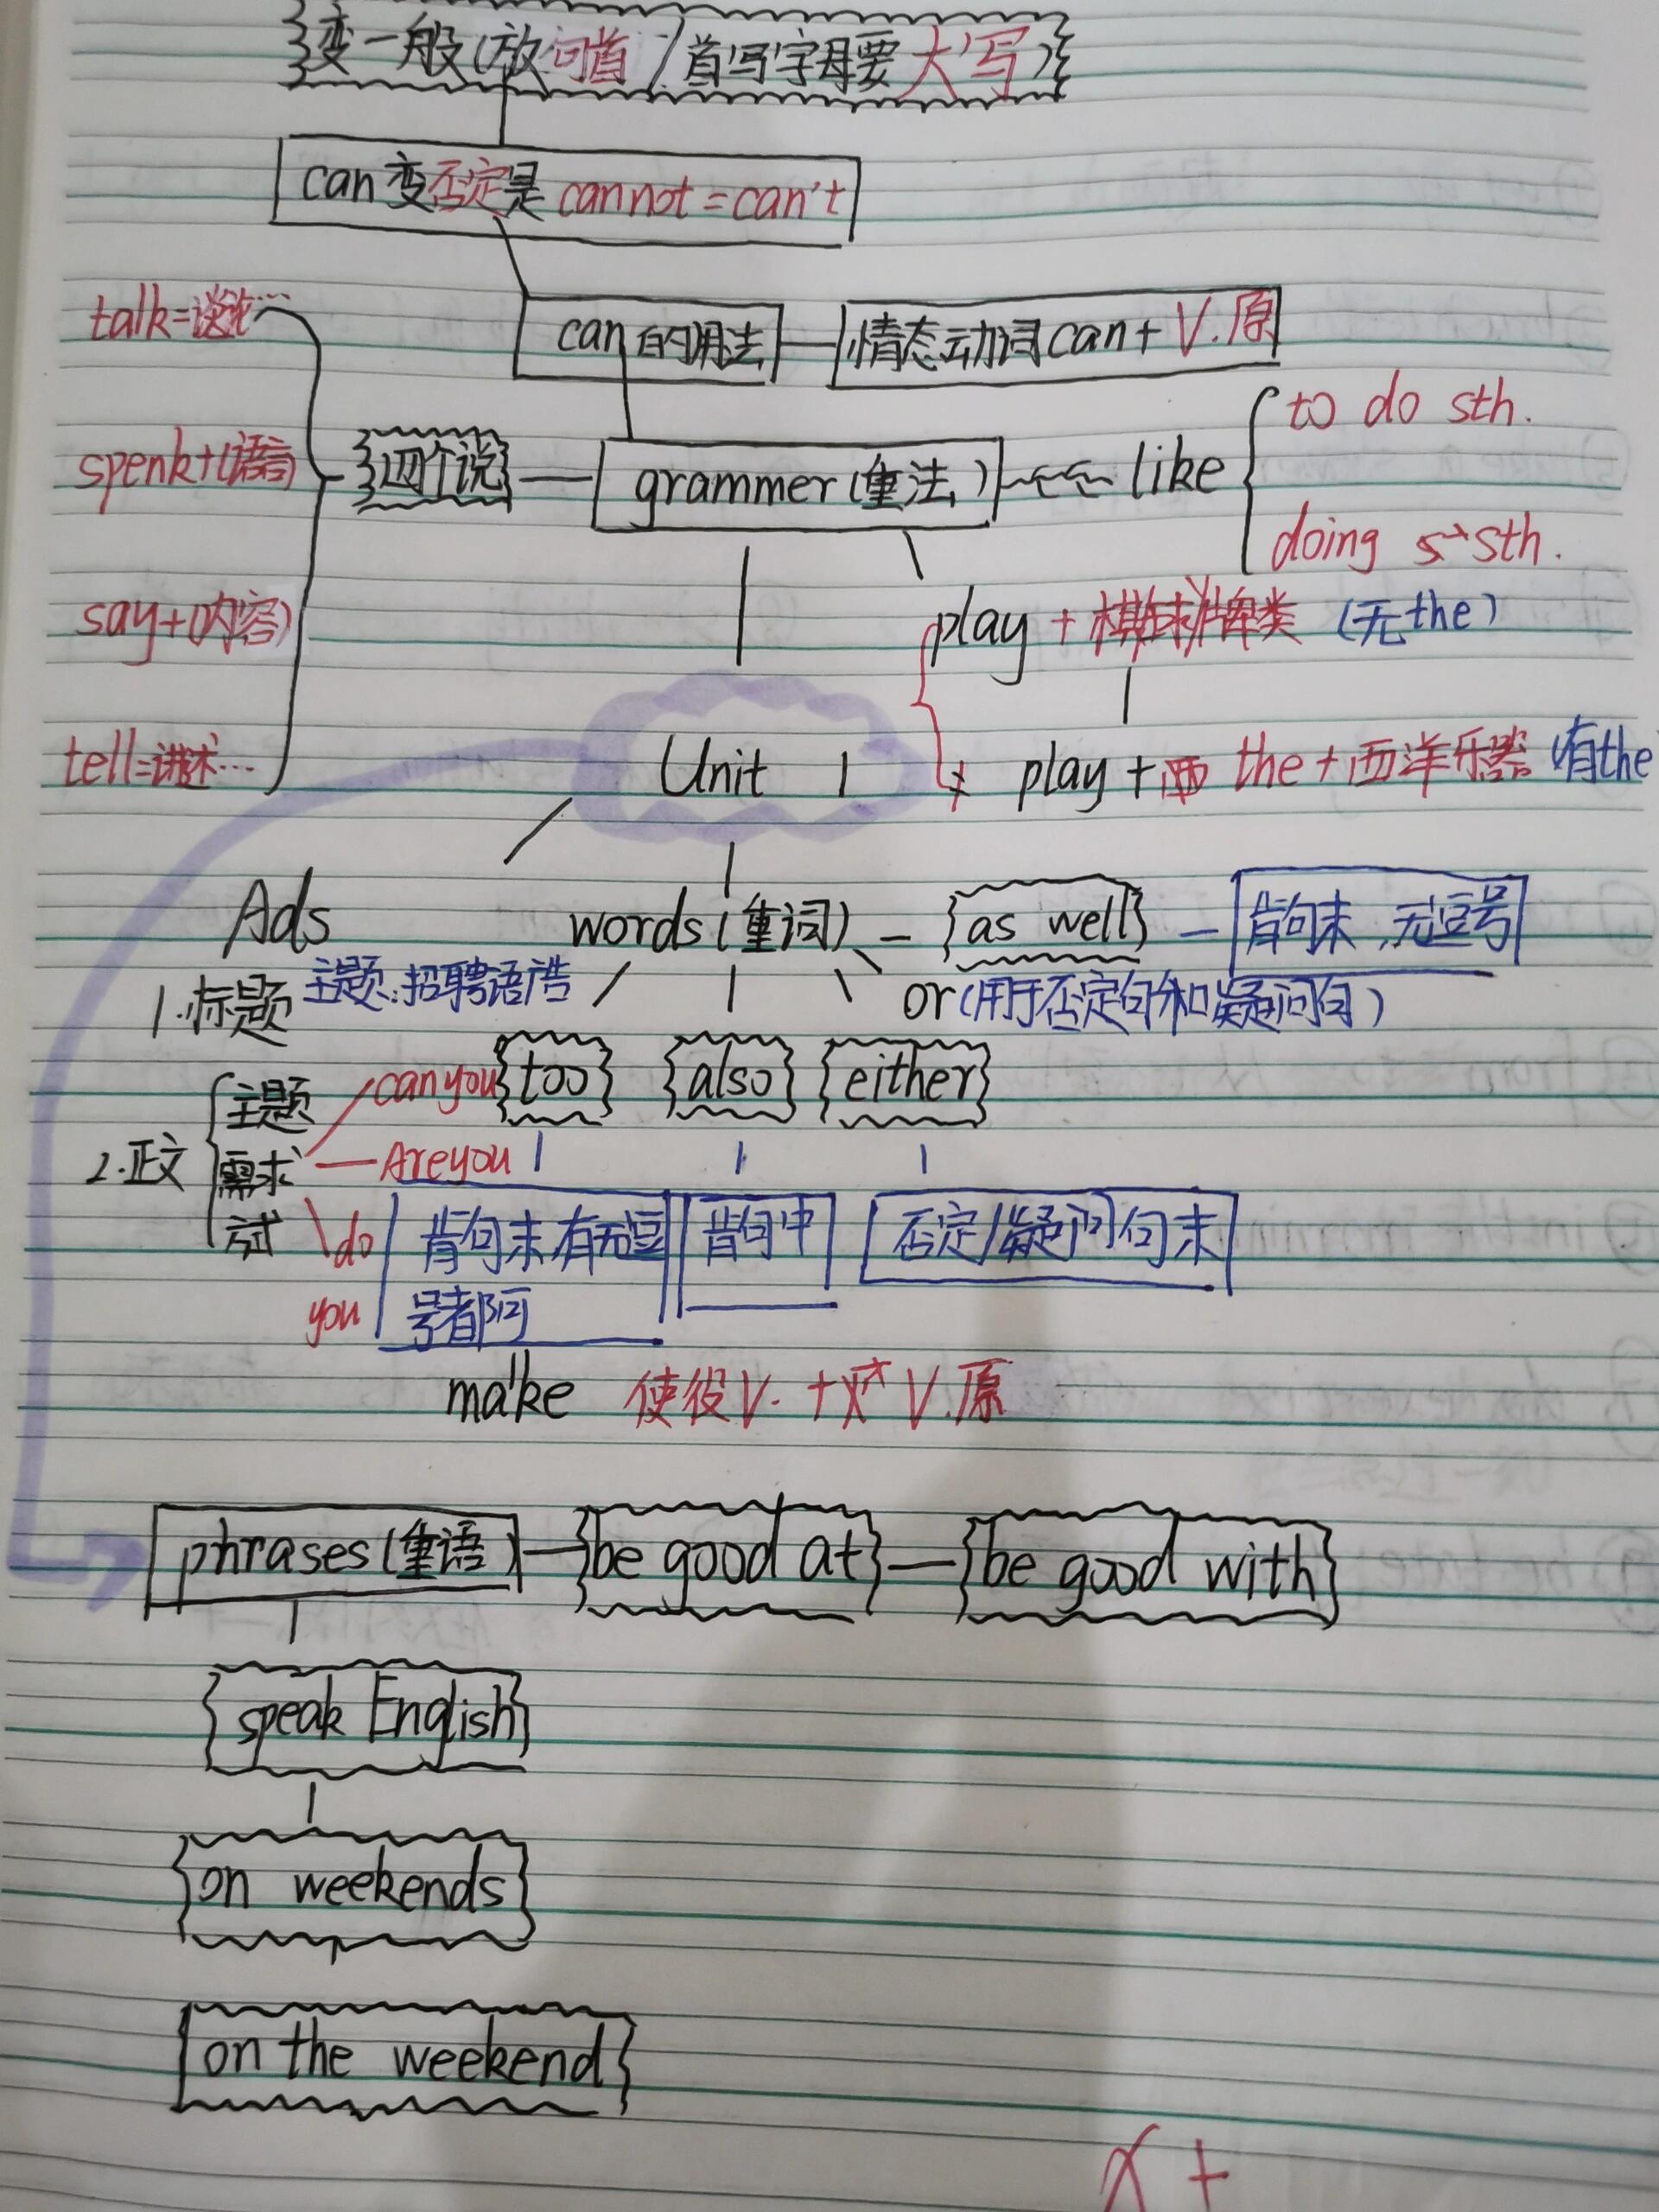 变一般(放句首/首写字母要大写)
can变否定是cannot=can't
talk=谈论…
can的用法
情态动词can+V.原
to do sth.
spenk+(语言)
四个说
grammer(重法)
like
doing sth.
say+(内容)
play+棋球牌类(无the)
tell=讲述…
Unit 1
play+ the+西洋乐器(有the
Ads
words(重词)
as well
肯句末,无逗号
1.标题
主题:招聘语告
or(用于否定句和疑问句)
主题
can you
too
also
either
2.正文
需求
Are you
方式
do
you
肯句末有无逗
号都阿
肯句中
否定/疑问句末
make 使役V.+ V.原
phrases(重语)
be good at
be good with
speak English
on weekends
on the weekend
x+